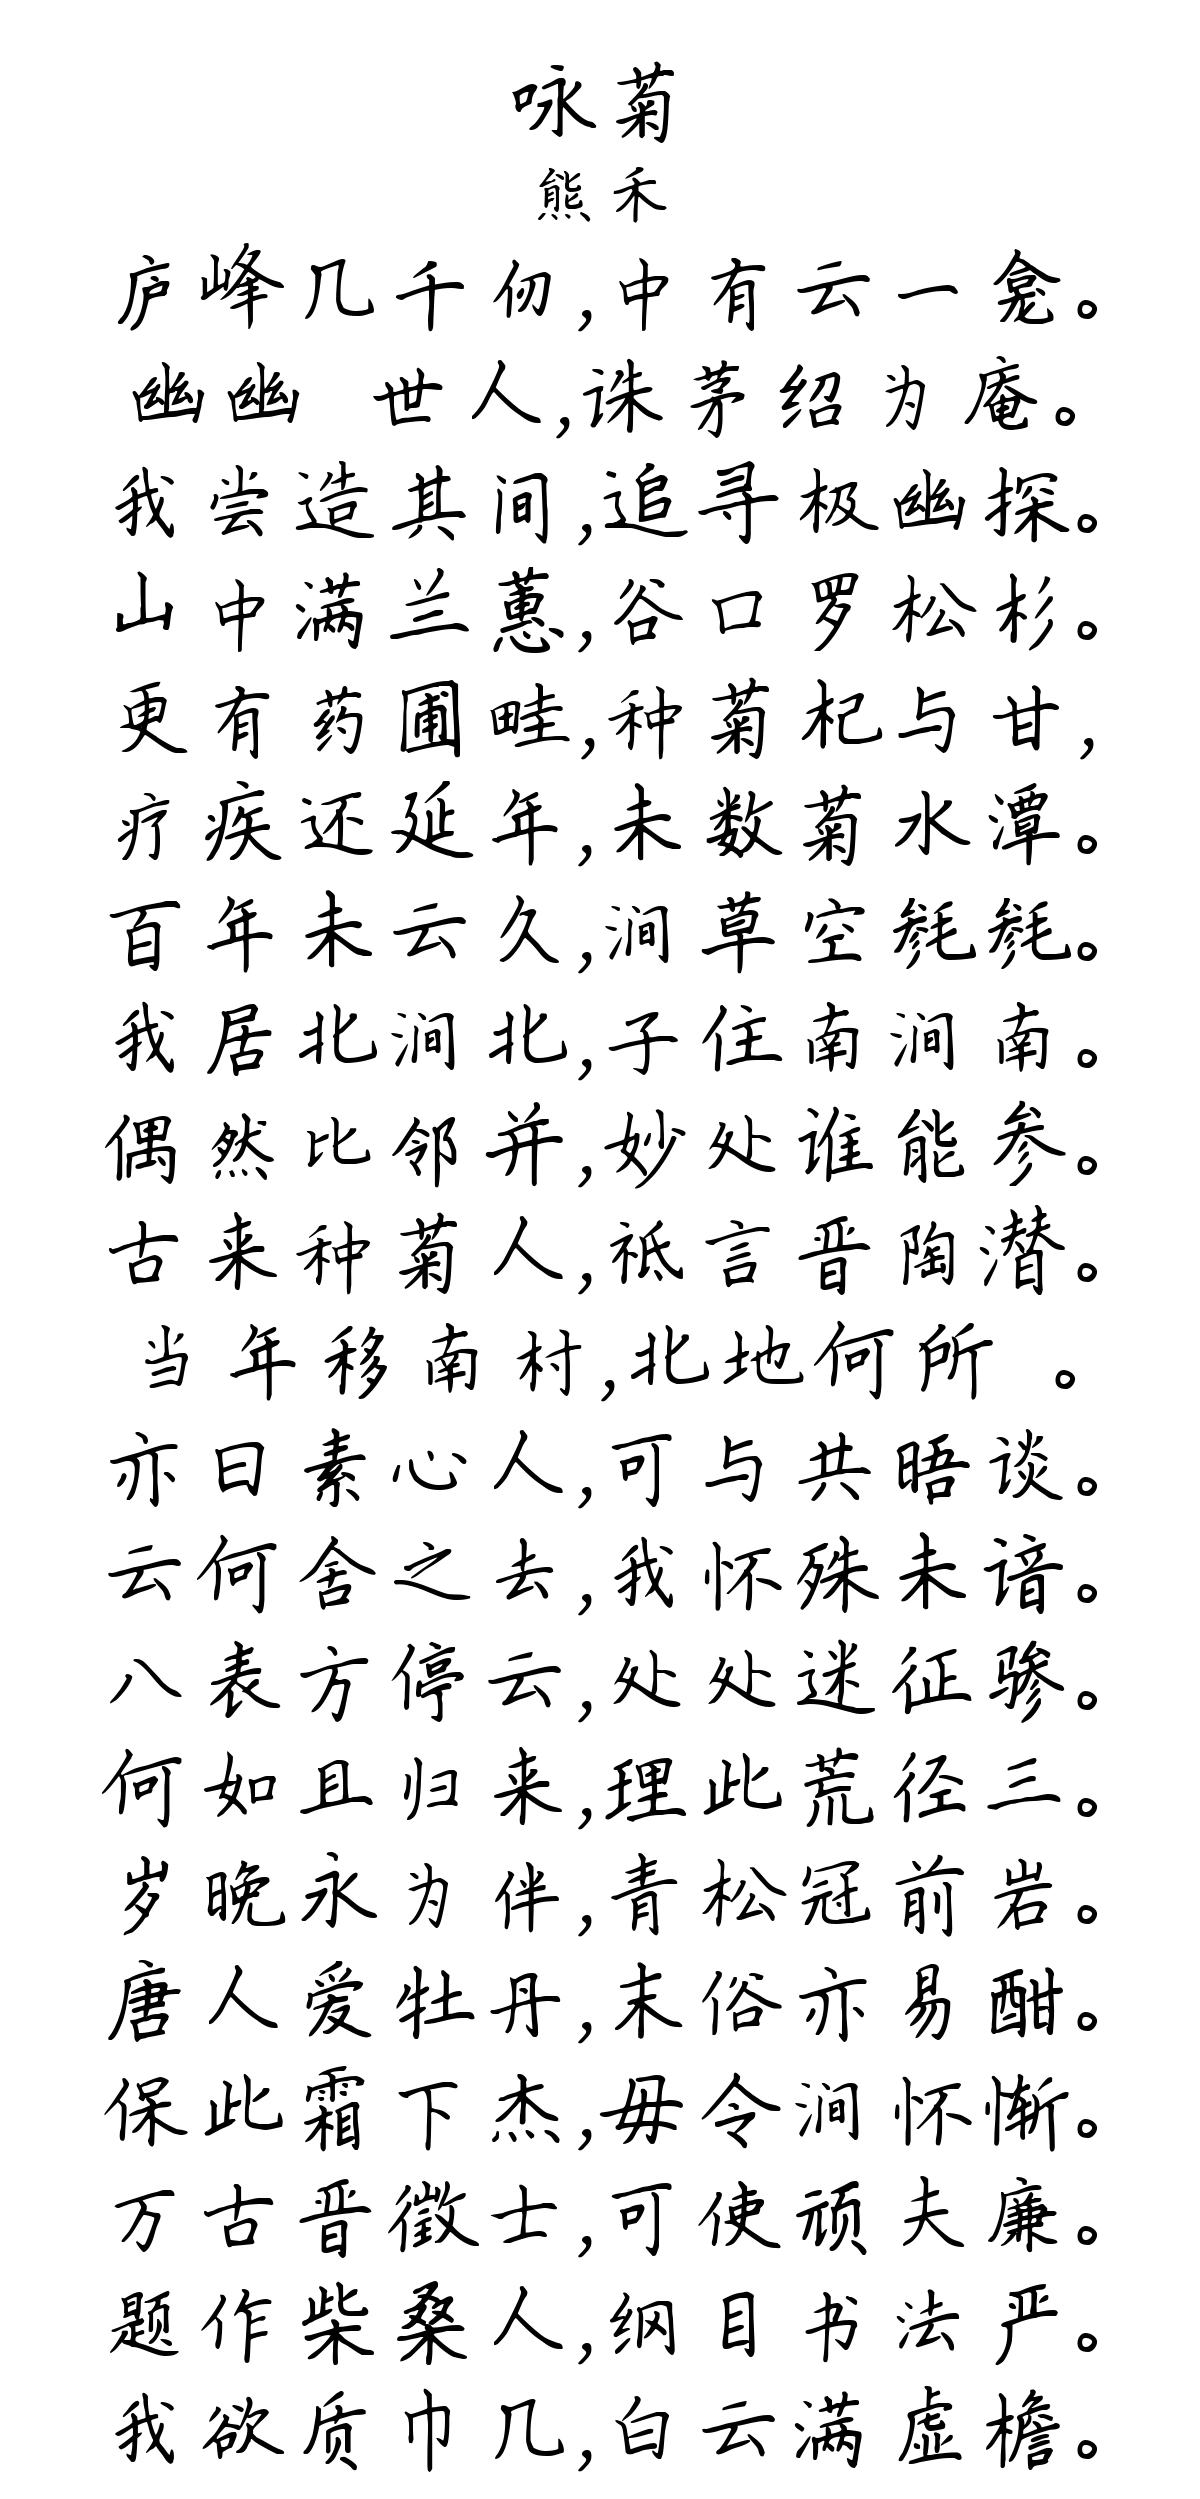 咏菊
熊禾
庐峰几千仞,中有云一龛。
幽幽 世人,诛茅结为庵。
我尝造其间,追寻极幽探。
山中满兰蕙,谷口罗松杉。
更有药圃畦,种菊杞与甘,
疗疾还延年,未数菊水潭。
百年未云久,涧草空毵毵。
我居北涧北,子住南涧南。
偶然比邻并,妙处谁能参。
古来种菊人,祇言晋陶潜。
当年移南村,北地何所 。
亦曰素心人可与共晤谈。
云何舍之去,我怀殊未谙。
八表方停云,处处迷征骖。
何如且归来,理此荒径三。
岁晚永为伴,青松冠前岩。
唐人爱牡丹,末俗亦易酣。
保此霜下杰,毋令涧怀惭。
万古晋徵士,可使顽夫廉。
题作柴桑人,纲目书法严。
我欲质巾几,白云满虚檐。